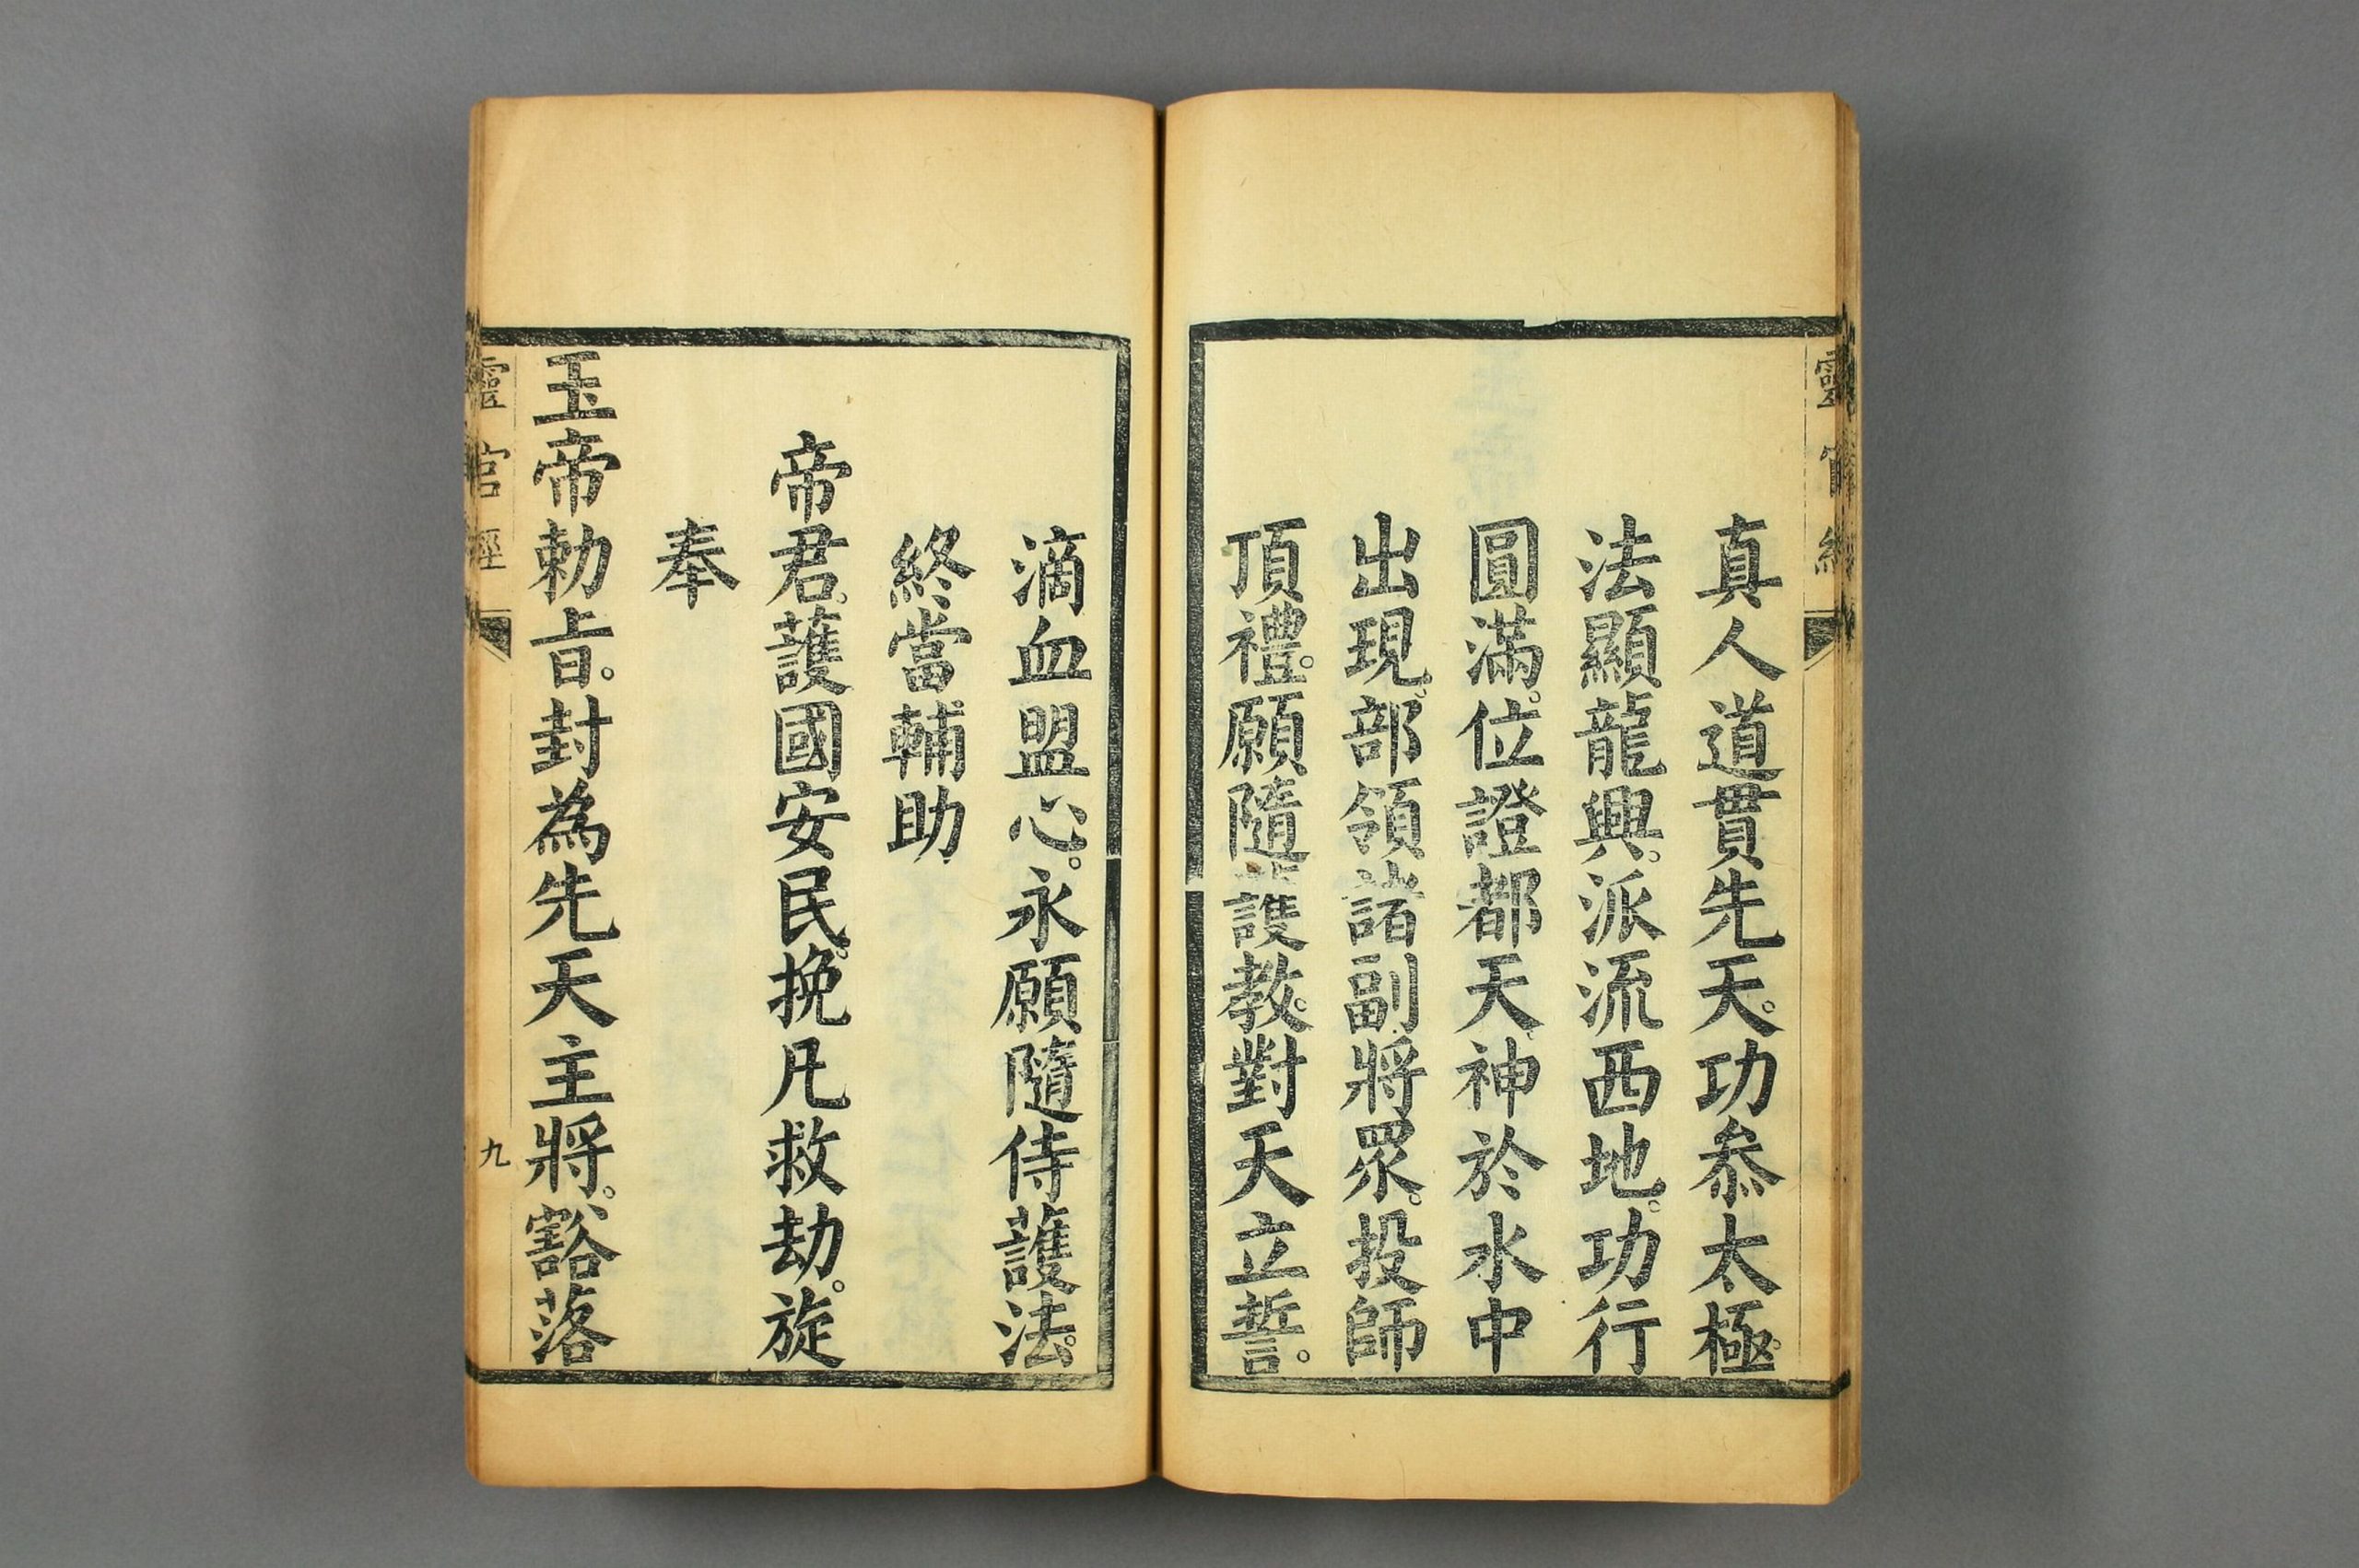 靈官經
真人道貫先天。功叅太極。
法顯龍興。派流西地。功行
圓滿。位證都天。神於水中
出現。部領諸副將眾。投師
頂禮。願隨護教。對天立誓。
滴血盟心。永願隨侍護法。
終當輔助
帝君。護國安民。挽凡救劫。旋
奉
玉帝勅旨。封為先天主將。豁落
靈官經
九